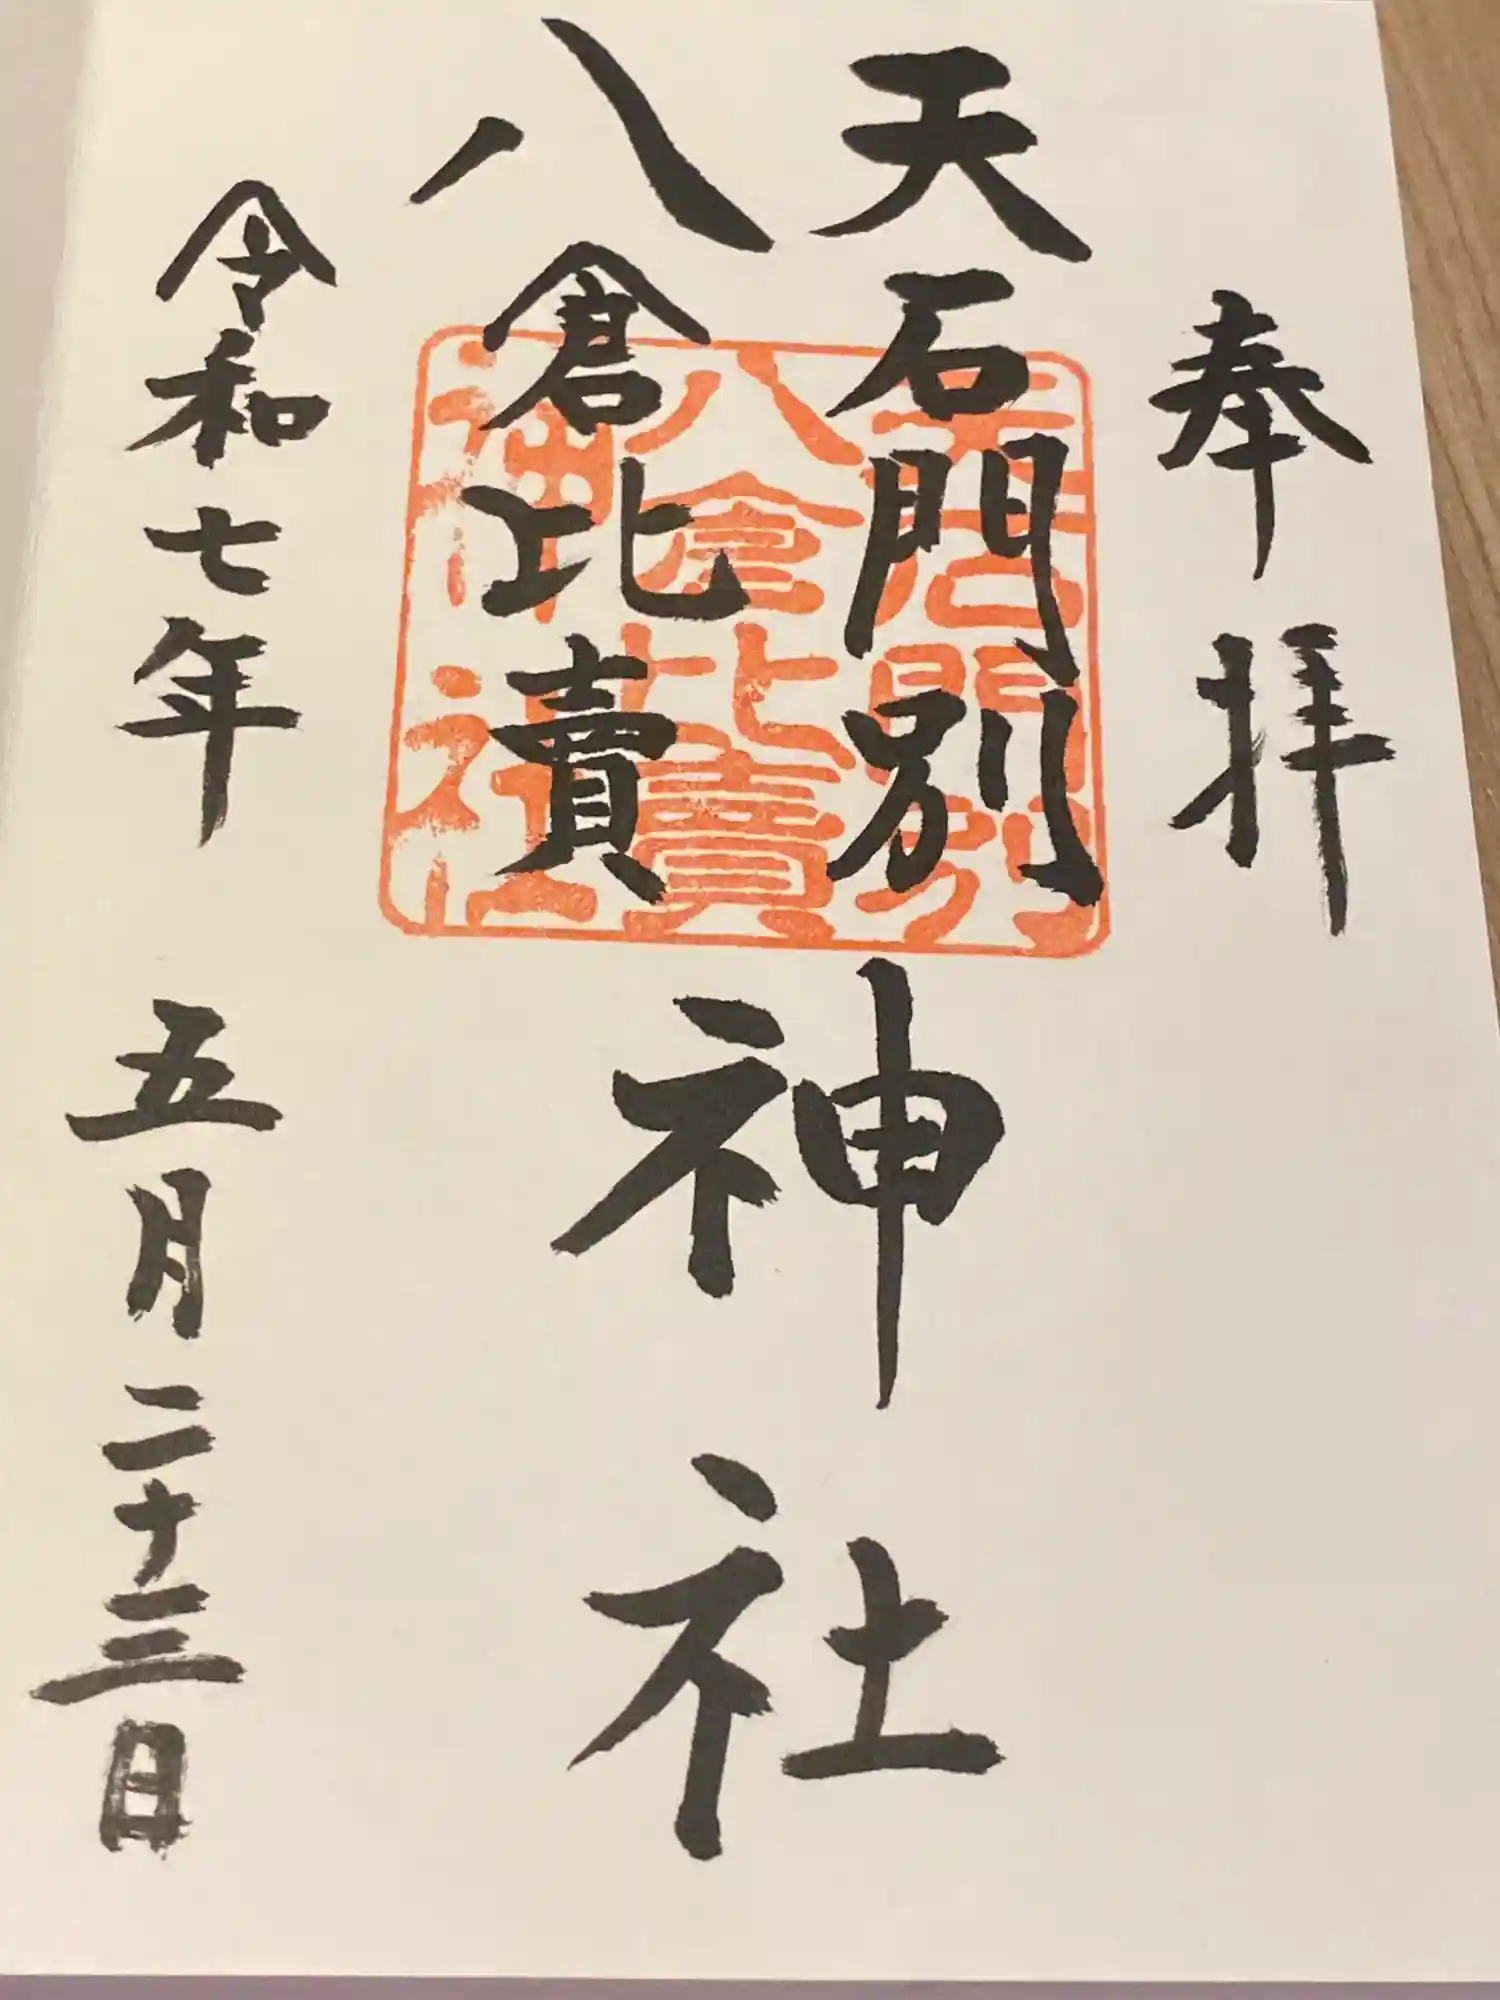 奉拝
天石門別
八倉比賣
神社
令和七年 五月二十三日
天石門別
八倉比賣
神社